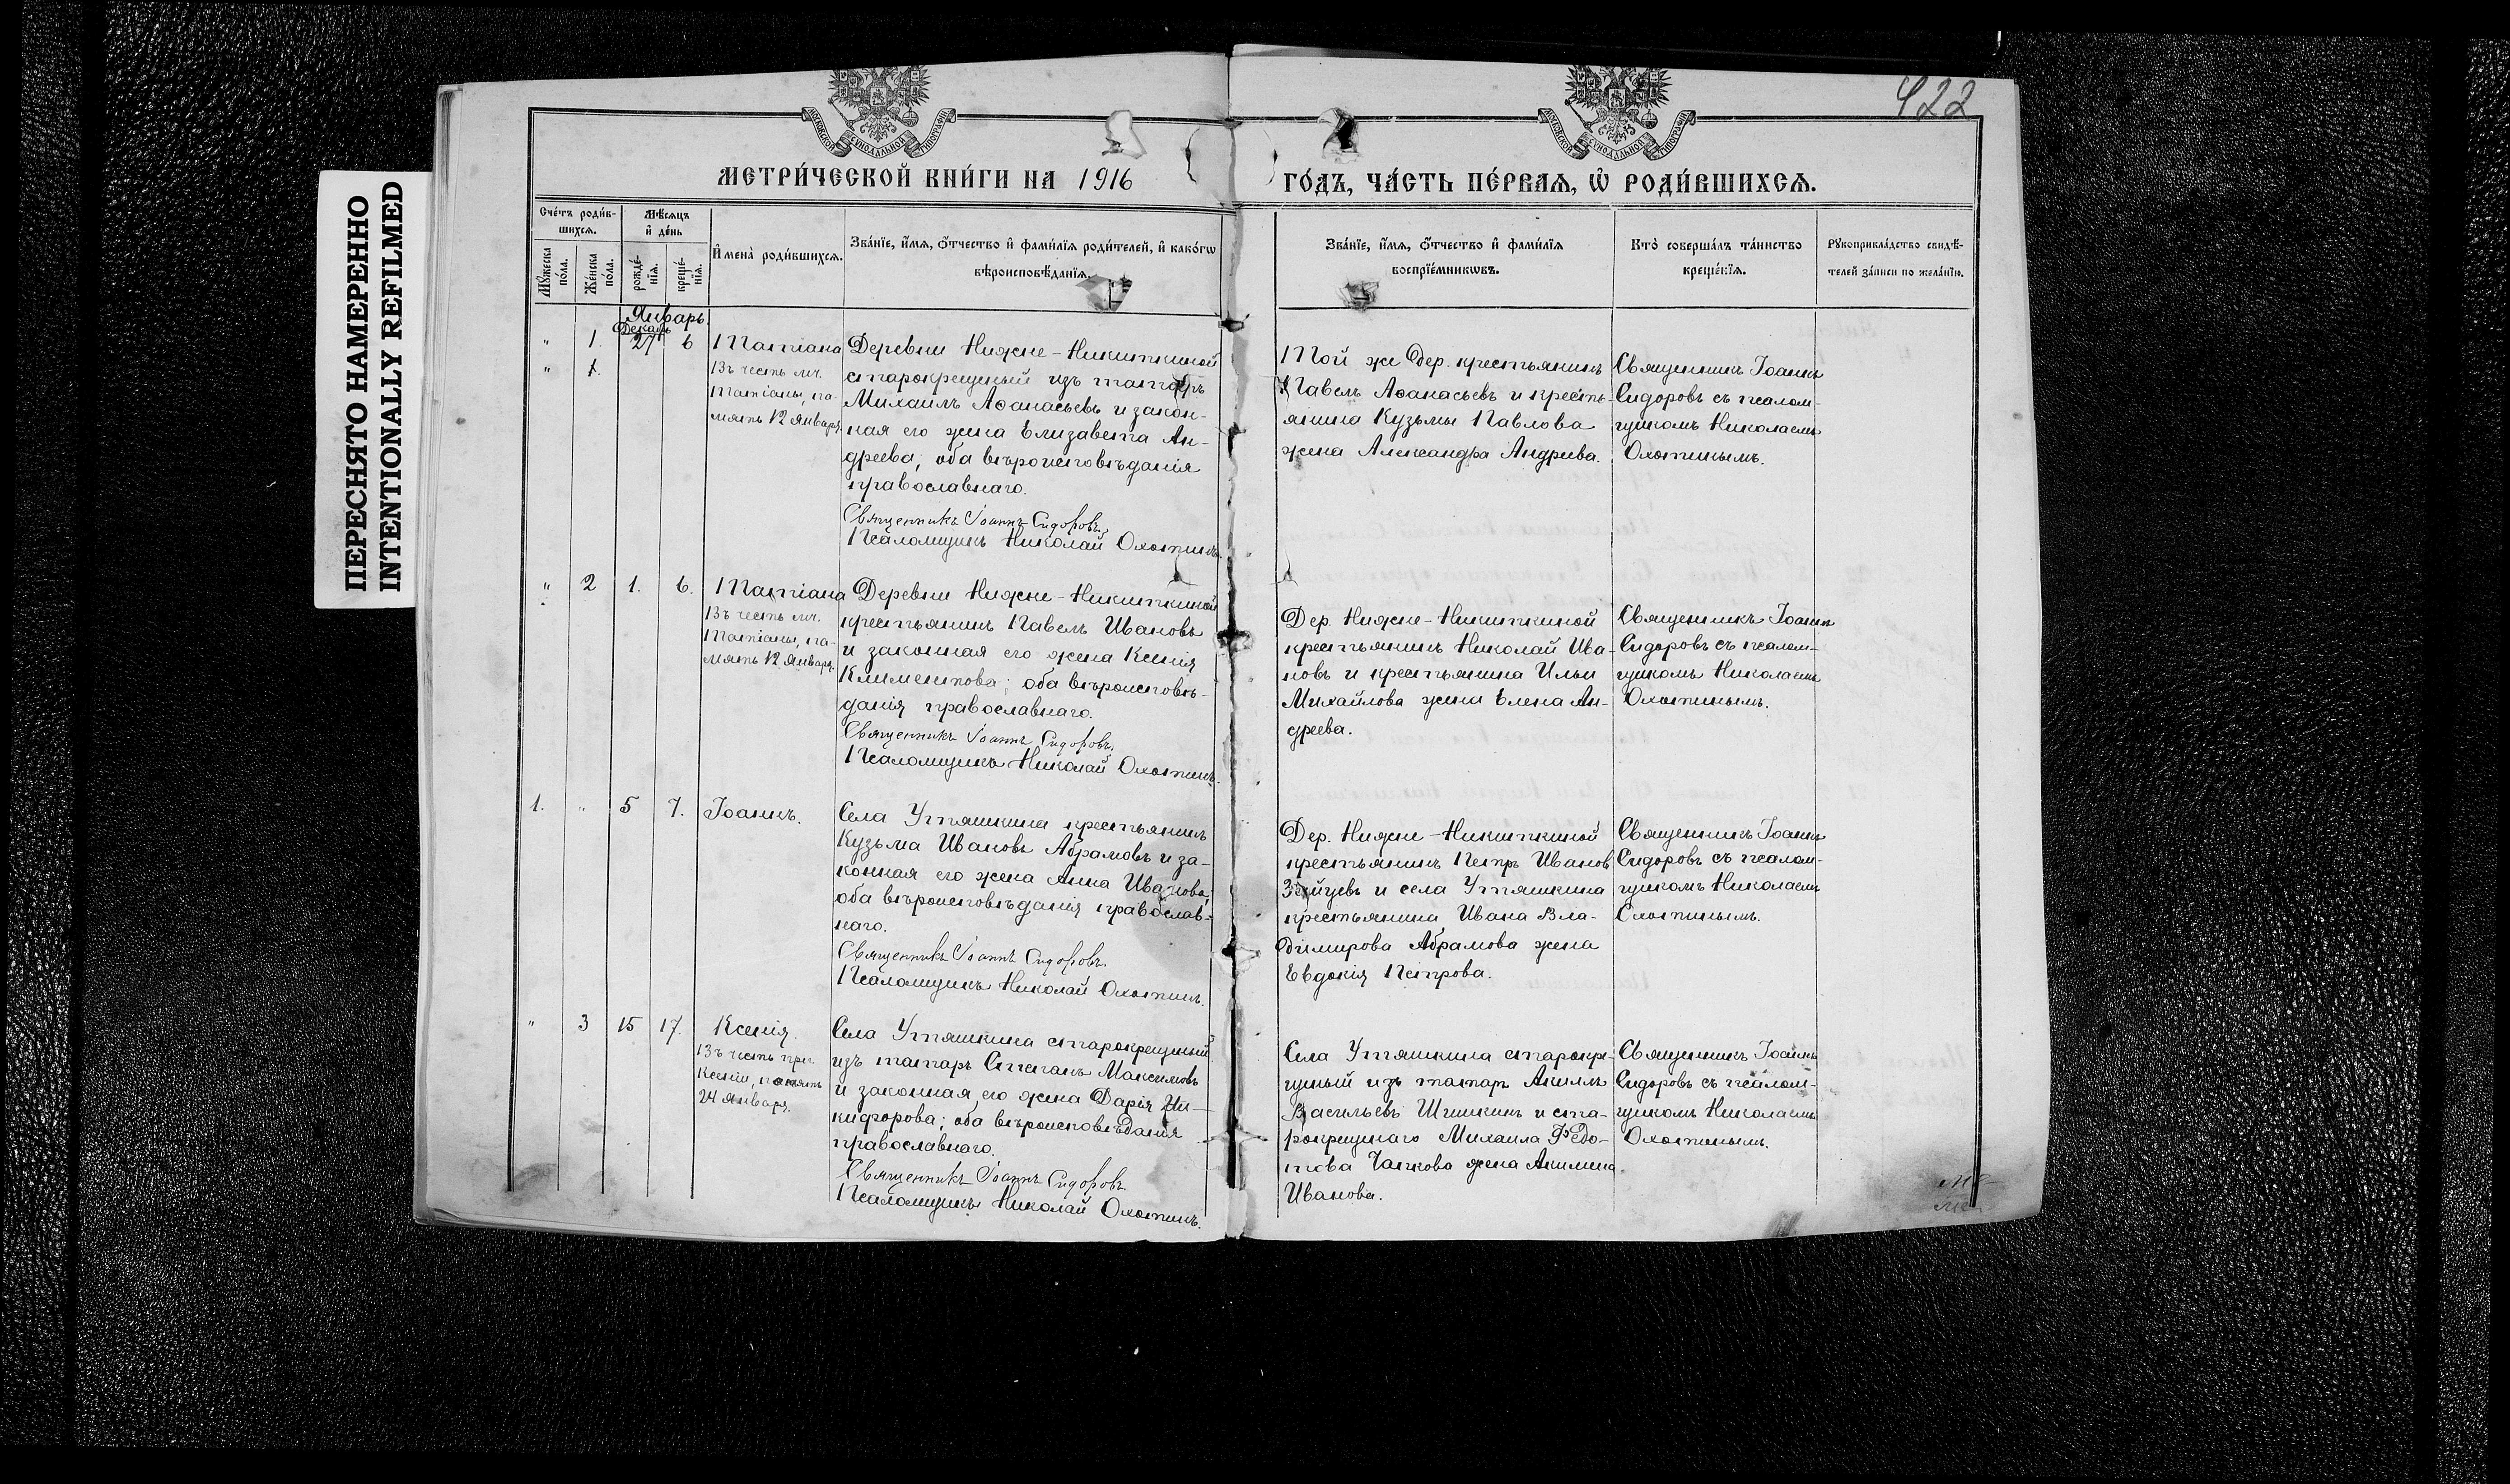 ПЕРЕСНЯТО НАМЕРЕННО
INTENTIONALLY REFILMED
422
МОСКОВСКОЙ СѴНОДАЛЬНОЙ ТИПОГРАФІИ
МОСКОВСКОЙ СѴНОДАЛЬНОЙ ТИПОГРАФІИ
МЕТРИ́ЧЕСКОЙ КНИ́ГИ НА 1916
ГО́ДЪ, ЧА́СТЬ ПЕ́РВАѦ, Ѡ҆ РОДИ́ВШИХСѦ.
Сче́тъ роди́в-
шихсѧ.
Мꙋ́жеска
по́ла.
Же́нска
по́ла.
Мѣ́сѧцъ
и҆ де́нь
рожде́-
нїѧ.
креще́-
нїѧ.
И҆мена̀ роди́вшихсѧ.
Зва́нїе, и҆́мѧ, ѻ҆́тчество и҆ фами́лїѧ роди́телей, и҆ како́гѡ
вѣроисповѣ́данїѧ.
Зва́нїе, и҆́мѧ, ѻ҆́тчество и҆ фами́лїѧ
воспрїе́мникѡвъ.
Кто̀ соверша́лъ та́инство
креще́нїѧ.
Рꙋкоприкла́дство свидѣ́-
телей за́писи по жела́нїю.
Январь.
Декабь
" 1. 27 6
" 1.
Татіана
Въ честь мч.
Татіаны, па-
мять 12 Января.
Деревни Нижне-Никиткиной
старокрещеный изъ татаръ
Михаилъ Аѳанасьевъ и закон-
ная его жена Елизавета Ан-
дреева, оба вѣроисповѣданія
православнаго.
Священникъ Іоаннъ Сидоровъ.
Псаломщикъ Николай Охотинъ.
Той же Дер. крестьянинъ
Павелъ Аѳанасьевъ и кресть-
янина Кузьмы Павлова
жена Александра Андреева.
Священникъ Іоаннъ
Сидоровъ съ псалом-
щикомъ Николаемъ
Охотинымъ.
" 2 1. 6.
Татіана
Въ честь мч.
Татіаны, па-
мять 12 Января.
Деревни Нижне-Никиткиной
крестьянинъ Павелъ Ивановъ
и законная его жена Ксенія
Климентова; оба вѣроисповѣ-
данія православнаго.
Священникъ Іоаннъ Сидоровъ.
Псаломщикъ Николай Охотинъ.
Дер. Нижне-Никиткиной
крестьянинъ Николай Ива-
новъ и крестьянина Ильи
Михайлова жена Елена Ан-
дреева.
Священникъ Іоаннъ
Сидоровъ съ псалом-
щикомъ Николаемъ
Охотинымъ.
1. " 5 7.
Іоаннъ.
Села Утяшкина крестьянинъ
Кузьма Ивановъ Абрамовъ и за-
конная его жена Анна Иванова,
оба вѣроисповѣданія православ-
наго.
Священникъ Іоаннъ Сидоровъ.
Псаломщикъ Николай Охотинъ.
Дер. Нижне-Никиткиной
крестьянинъ Петръ Ивановъ
Зайцевъ и села Утяшкина
крестьянина Ивана Вла-
димирова Абрамова жена
Евдокія Петрова.
Священникъ Іоаннъ
Сидоровъ съ псалом-
щикомъ Николаемъ
Охотинымъ.
" 3 15 17.
Ксенія.
Въ честь прп.
Ксеніи, память
24 Января.
Села Утяшкина старокрещеный
изъ татаръ Степанъ Максимовъ
и законная его жена Дарія Ни-
кифорова; оба вѣроисповѣданія
православнаго.
Священникъ Іоаннъ Сидоровъ.
Псаломщикъ Николай Охотинъ.
Села Утяшкина старокре-
щеный изъ татаръ
Васильевъ Шишкинъ и ста-
рокрещенаго Михаила Ѳедо-
това жена Акилина
Иванова.
Священникъ Іоаннъ
Сидоровъ съ псалом-
щикомъ Николаемъ
Охотинымъ.